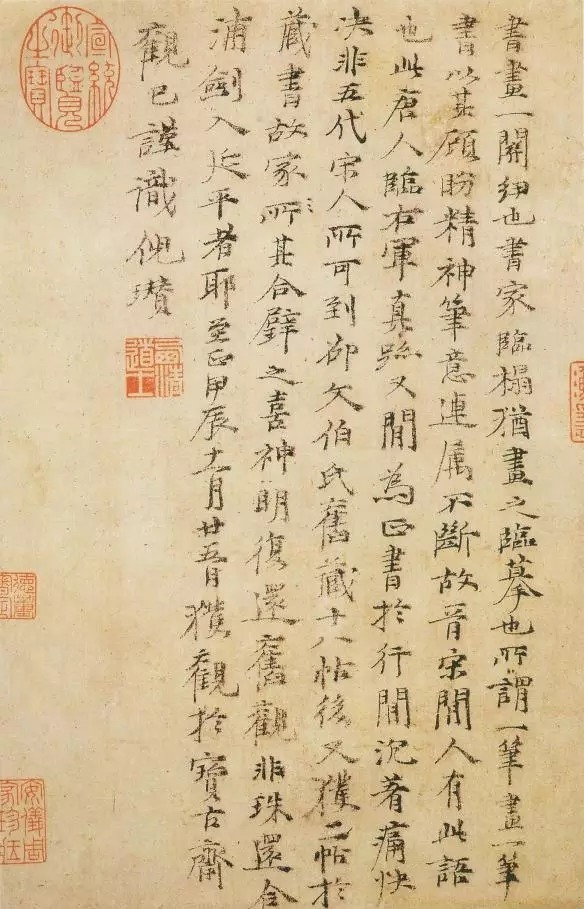 書畫一關紐也書家臨搨猶畫之臨摹也所謂一筆畫一筆
書以其顧盼精神筆意連属不斷故晉宋閒人有此語
也此唐人臨右軍真跡又閒為正書於行閒沉著痛快
决非五代宋人所可到郤文伯氏舊藏十八帖後又獲二帖於
藏書故家所其合璧之喜神明復還舊觀非珠還合
浦劍入延平者耶至正甲辰十一月廿五日獲觀於寶古齋
觀已謹識倪瓚
宣統御覽之寶
安儀周家珍藏